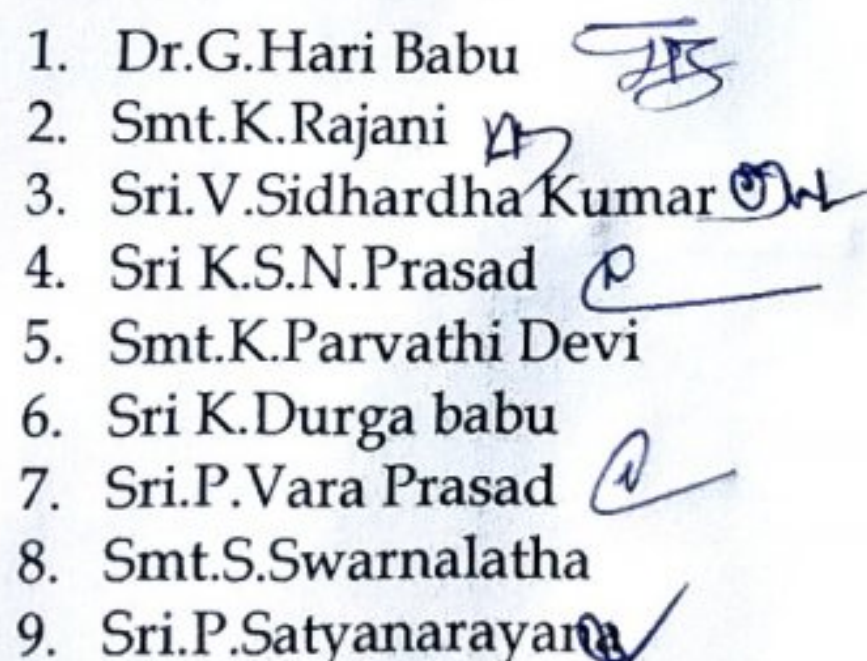 1. Dr.G.Hari Babu
2. Smt.K.Rajani
3. Sri.V.Sidhardha Kumar
4. Sri K.S.N.Prasad
5. Smt.K.Parvathi Devi
6. Sri K.Durga babu
7. Sri.P.Vara Prasad
8. Smt.S.Swarnalatha
9. Sri.P.Satyanarayana